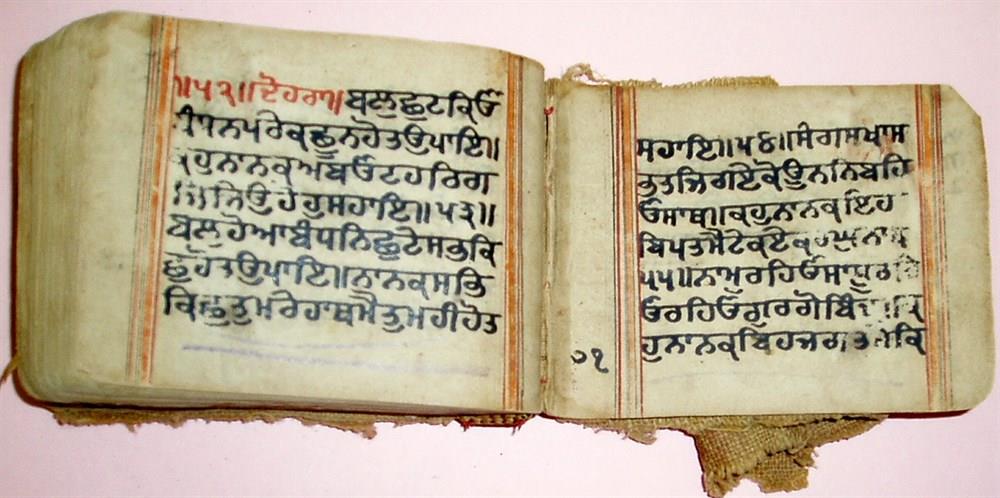 ॥੫੨॥ਦੋਹਰਾ॥ਬਲੁਛੁਟਕਿਓ
ਨਪਰੇਕਛੂਨਹੋਤਉਪਾਇ॥
ਕਹੁਨਾਨਕਅਬਓਟਹਰਿਗ
ਜਿਉਹੋਹੁਸਹਾਇ॥੫੩॥
ਬਲੁਹੋਆਬੰਧਨਿਛੁਟੇਸਭੁਕਿ
ਛੁਹੋਤਉਪਾਇ॥ਨਾਨਕਸਭਿ
ਕਿਛੁਤੁਮਰੇਹਾਥਮੈਤੁਮਹੀਹੋਤ
ਸਹਾਇ॥੫੪॥ਸੰਗਸਖਾਸ
ਭਤਜਿਗਏਕੋਊਨਨਿਬਹਿ
ਓਸਾਥ॥ਕਹੁਨਾਨਕਇਹ
ਬਿਪਤਮੈਟੇਕਏਕ
੫੫॥ਨਾਮੁਰਹਿਓਸਾਧੂਰਹਿ
ਓਰਹਿਓਗੁਰਗੋਬਿੰਦ॥ਕ
ਹੁਨਾਨਕਬਿਹਜਗਤ ਕਿ
੭੧